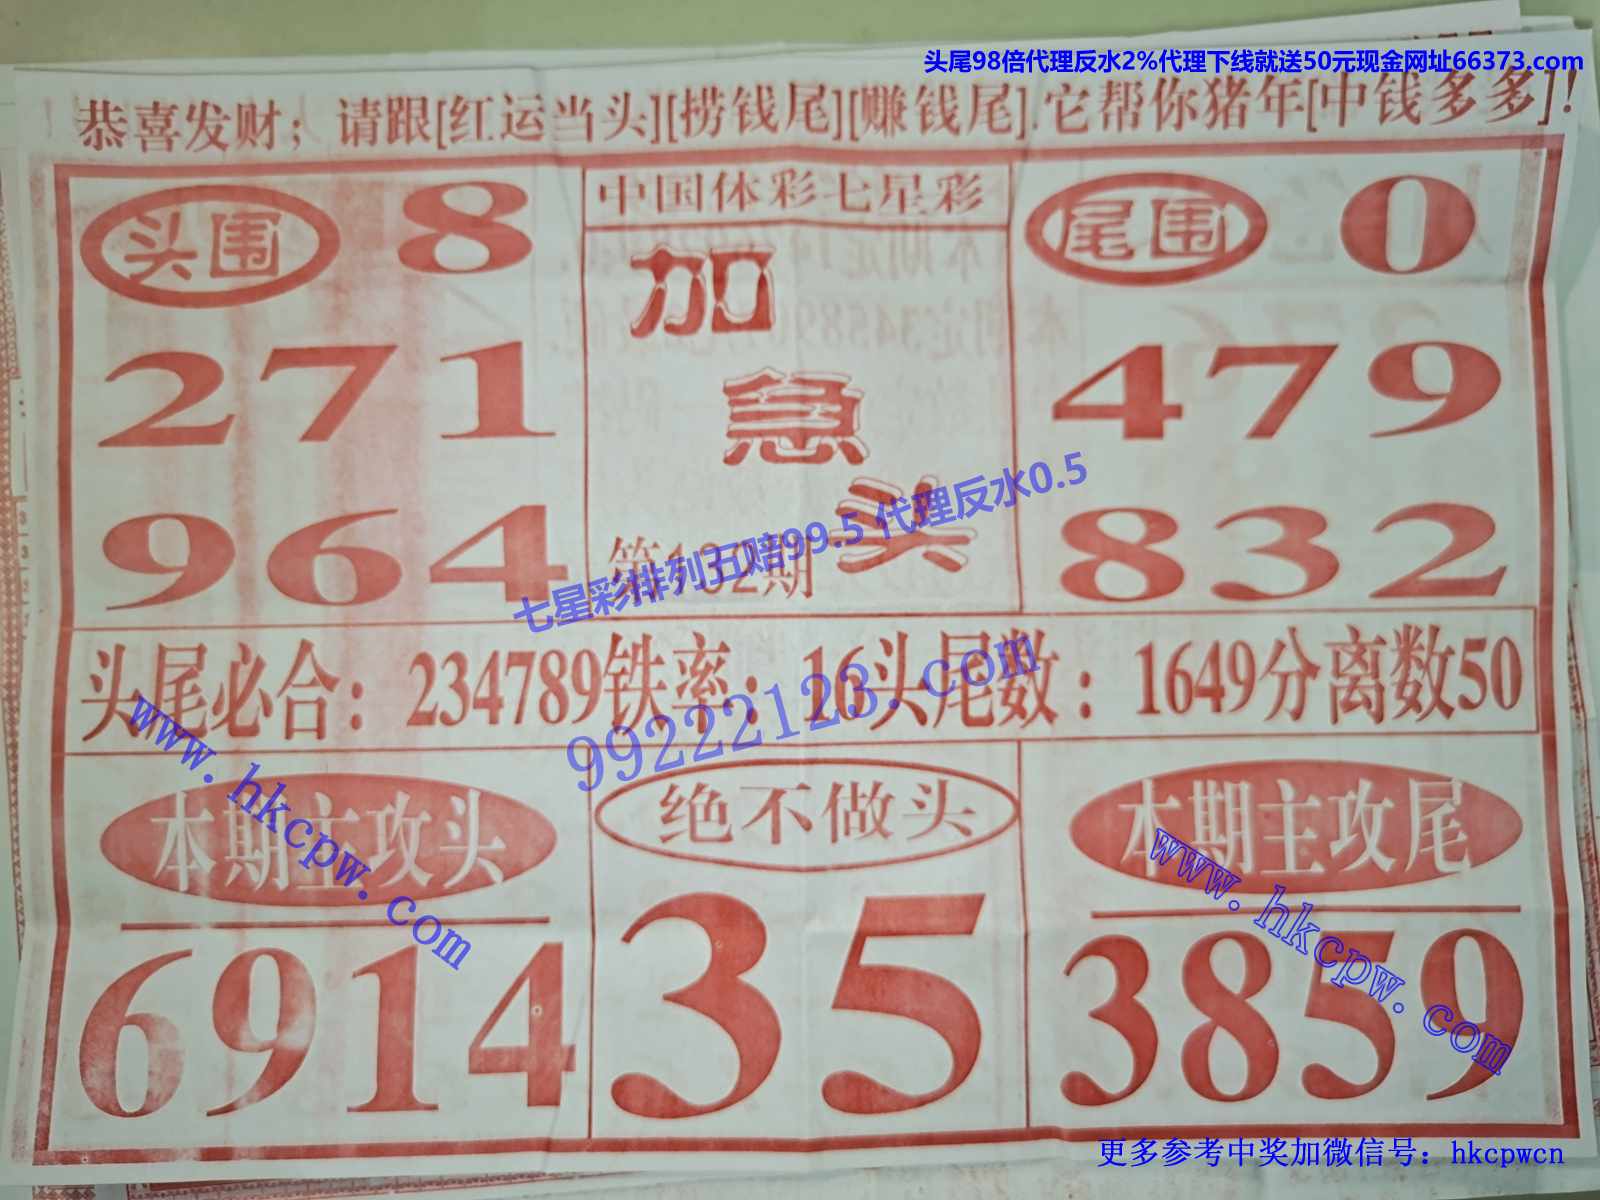 头尾98倍代理反水2%代理下线就送50元现金网址66373.com
恭喜发财；请跟[红运当头][捞钱尾][赚钱尾].它帮你猪年[中钱多多]!
头围 8
271
964
中国体彩七星彩
加
急
头
第132期
尾围 0
479
832
七星彩排列五赔99.5 代理反水0.5
头尾必合：234789铁率：16头尾数：1649分离数50
99222123.com
www.hkcpw.com
本期主攻头
6914
绝不做头
35
本期主攻尾
3859
www.hkcpw.com
更多参考中奖加微信号：hkcpwcn